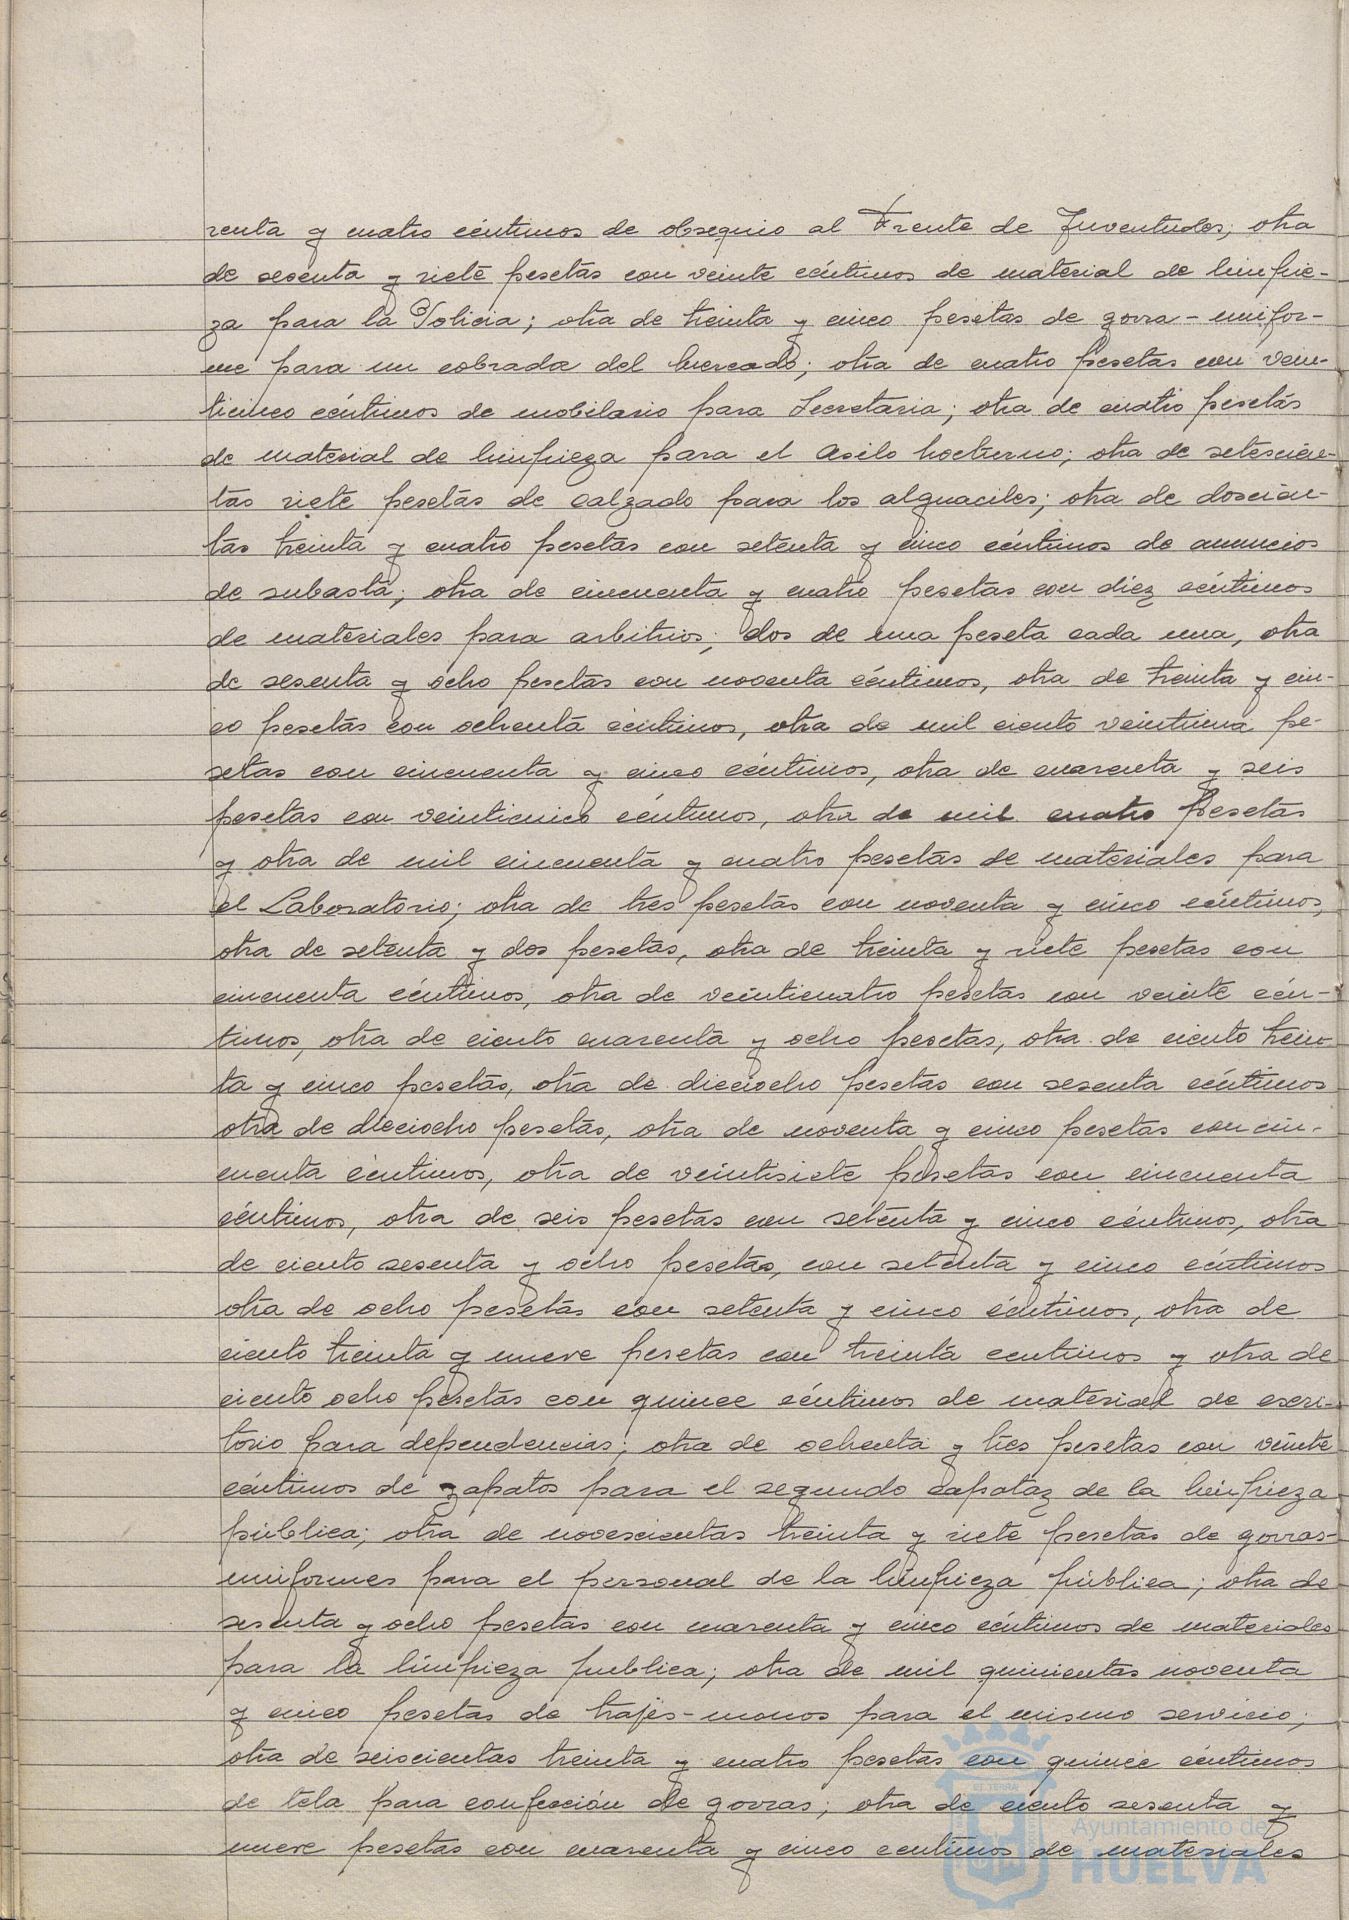 renta y cuatro céntimos de obsequio al Frente de Juventudes; otra
de sesenta y siete pesetas con veinte céntimos de material de limpie-
za para la Policia; otra de treinta y cinco pesetas de gorra-unifor-
me para un cobrador del Mercado; otra de cuatro pesetas con vein-
ticinco céntimos de mobilario para Secretaria; otra de cuatro pesetas
de material de limpieza para el Asilo nocturno; otra de setescien-
tas siete pesetas de calzado para los alguaciles; otra de doscien-
tas treinta y cuatro pesetas con setenta y cinco céntimos de anuncios
de subasta; otra de cincuenta y cuatro pesetas con diez céntimos
de materiales para arbitrios; dos de una peseta cada una, otra
de sesenta y ocho pesetas con noventa céntimos, otra de treinta y cin-
co pesetas con ochenta céntimos, otra de mil ciento veintiuna pe-
setas con cincuenta y cinco céntimos, otra de cuarenta y seis
pesetas con veinticinco céntimos, otra de mil cuatro pesetas
y otra de mil cincuenta y cuatro pesetas de materiales para
el Laboratorio; otra de tres pesetas con noventa y cinco céntimos,
otra de setenta y dos pesetas, otra de treinta y siete pesetas con
cincuenta céntimos, otra de veinticuatro pesetas con veinte cén-
timos, otra de ciento cuarenta y ocho pesetas, otra de ciento trein-
ta y cinco pesetas, otra de dieciocho pesetas con sesenta céntimos
otra de dieciocho pesetas, otra de noventa y cinco pesetas con cin-
cuenta céntimos, otra de veintisiete pesetas con cincuenta
céntimos, otra de seis pesetas con setenta y cinco céntimos, otra
de ciento sesenta y ocho pesetas, con setenta y cinco céntimos
otra de ocho pesetas con setenta y cinco céntimos, otra de
ciento treinta y nueve pesetas con treinta centimos y otra de
ciento ocho pesetas con quince céntimos de material de escri-
torio para dependencias; otra de ochenta y tres pesetas con veinte
céntimos de zapatos para el segundo capataz de la limpieza
pública; otra de novescientas treinta y siete pesetas de gorras-
uniformes para el personal de la limpieza pública; otra de
sesenta y ocho pesetas con cuarenta y cinco céntimos de materiales
para la limpieza publica; otra de mil quinientas noventa
y cinco pesetas de trajes-monos para el mismo servicio;
otra de seiscientas treinta y cuatro pesetas con quince céntimos
de tela para confección de gorras; otra de ciento sesenta y
nueve pesetas con cuarenta y cinco centimos de materiales
Ayuntamiento de
HUELVA